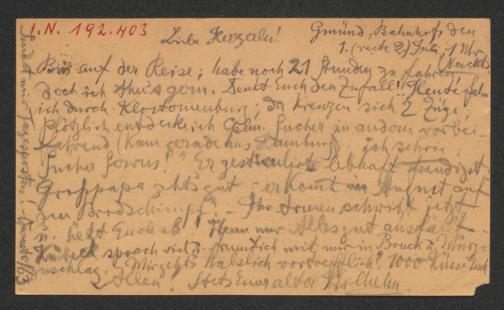 I.N. 192.403
Liebe Herzerln! Gmünd, Bahnhof, den
1. (recte 2) Juli, 1 Uhr
(Nachts)
Bin auf der Reise; habe noch 21 Stunden zu fahren
doch ich thu's gern. Denkt Euch den Zufall! Heute fah-
ich durch Klosterneuburg; da kreuzen sich 2 Züge,
plötzlich entdecke ich Sucher in andern vorbei
fahrend (kam gerade aus Hamburg) ich schrie
Sucher Servus!" Er gestikulirte lebhaft
Grosspapa geht's gut - er kommt im August auf
ein Brodschimpf" - Ihr Armen schwitzt jetzt
hetzt Euch ab! Wenn nur Alles gut ausfällt.
sprach viel freundlich mit mir in Bruck a/ Mürz-
zuschlag. Mir geht's vortrefflich! 1000 Küsse Euch
Allen. Stets Euer alter Wilhelm.